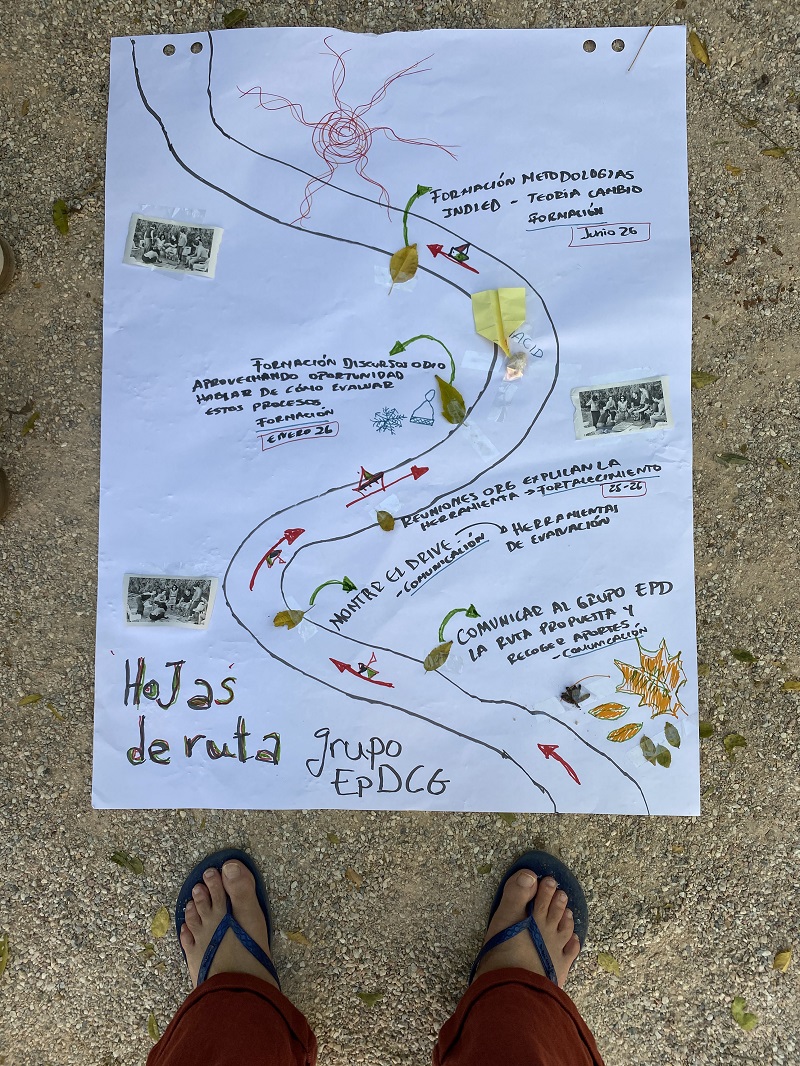 FORMACIÓN METODOLOGIAS
INDLED - TEORÍA CAMBIO
FORMACIÓN
Junio 26
ACID
FORMACIÓN DISCURSOS ODIO
APROVECHANDO OPORTUNIDAD
HABLAR DE CÓMO EVALUAR
ESTOS PROCESOS
FORMACIÓN
ENERO 26
REUNIONES ORG EXPLICAN LA
HERRAMIENTA → FORTALECIMIENTO
25-26
MONTAR EL DRIVE → HERRAMIENTAS
DE EVALUACIÓN
- COMUNICACIÓN
COMUNICAR AL GRUPO EPD
LA RUTA PROPUESTA Y
RECOGER APORTES
- COMUNICACIÓN
Hojas
de ruta
grupo
EpDCG